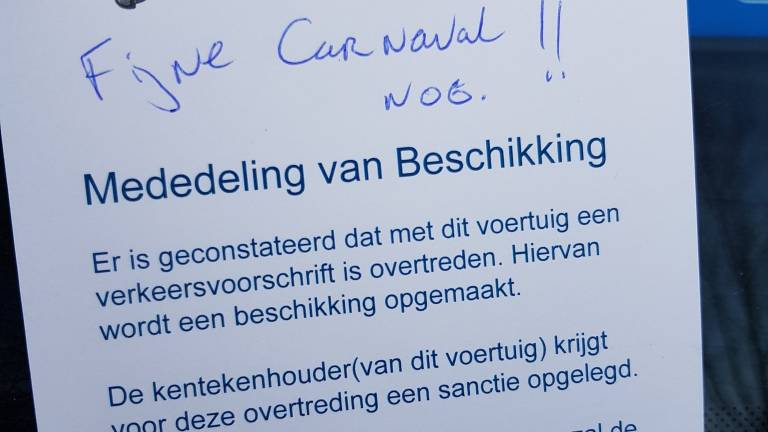 Fijne Carnaval !!
NOG.
Mededeling van Beschikking
Er is geconstateerd dat met dit voertuig een
verkeersvoorschrift is overtreden. Hiervan
wordt een beschikking opgemaakt.
De kentekenhouder(van dit voertuig) krijgt
voor deze overtreding een sanctie opgelegd.
zal de